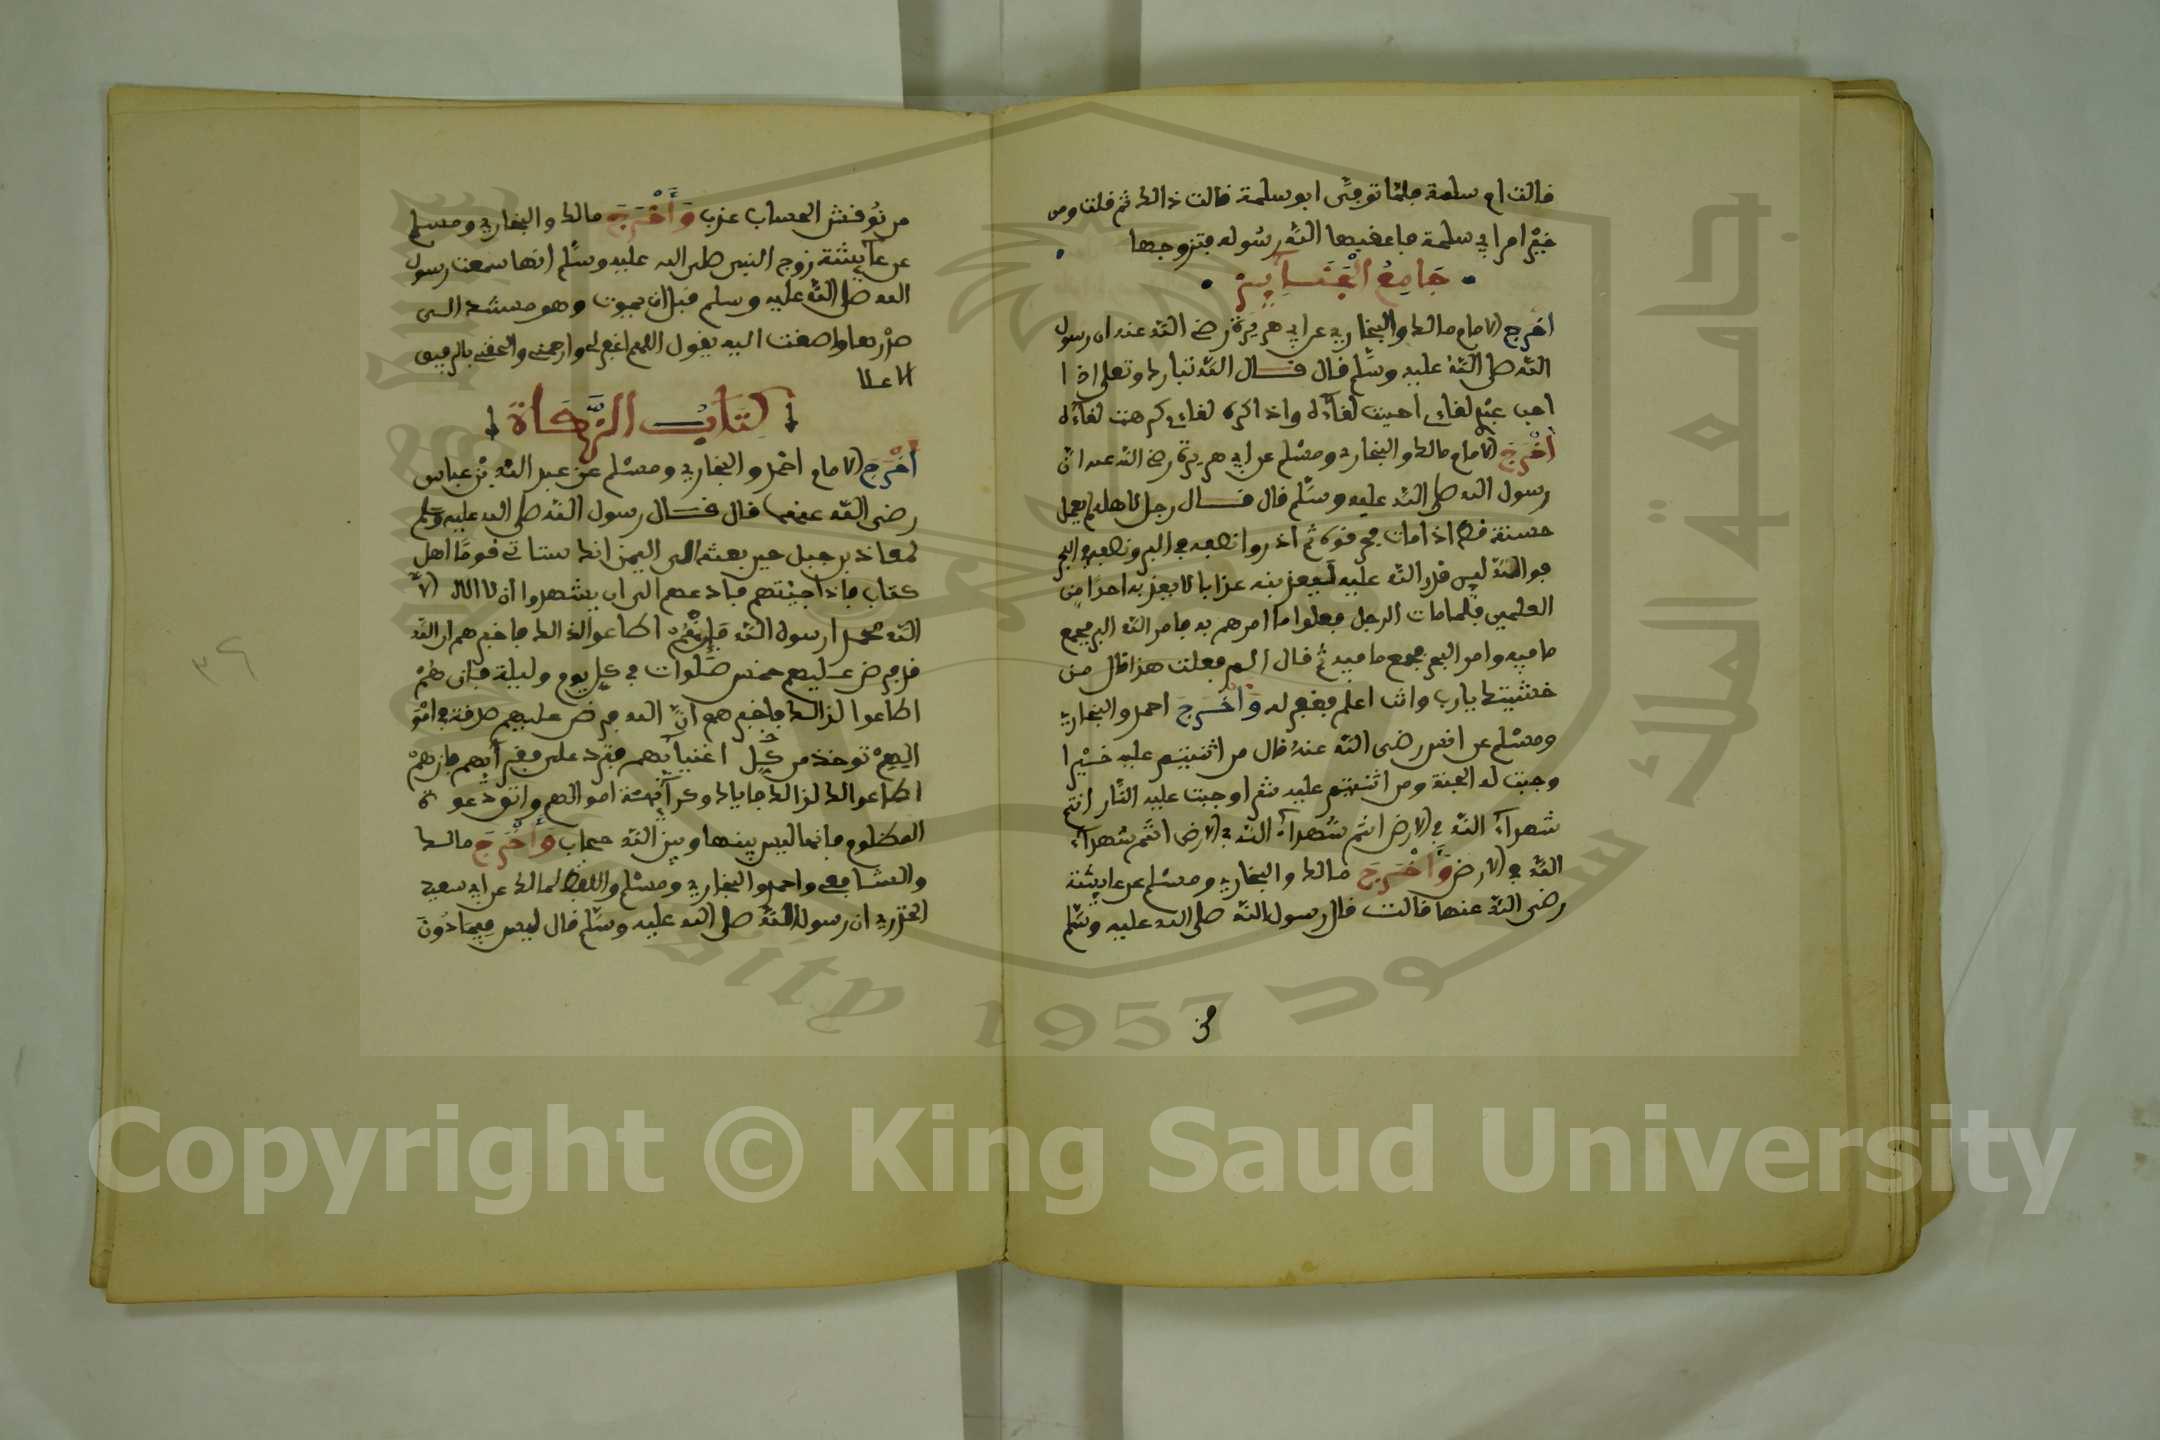 قالت ام سلمة فلمّا توفِّى ابو سلمة قالت ذالك ثم قلت ومن
خَيْر امن ابي سلمة فاعقبها اللَّه رسُوله فتزوجها
جَامِعُ الْجَنَـائِـزْ
أخْرج الامام مالك والبخاري عن ابي هُرَيْرَة رضي اللَّه عنه ان رسول
اللَّه صلى اللَّهُ عليه وسَلّم قال قــال اللَّه تبارك وتعلى اذا
احب عبْدِي لقاءِى احببت لقآءَه واذا كره لقاءِي كرهت لقآءَه
أَخْرَجَ الامام مالك والبخاري ومسْلم عن ابي هريرة رضي اللَّه عنه انّ
رسول اللَّه صلى اللَّه عليه وسَلّم قال قــال رجل لاهله لم يعمل
حسنة قط اذا مات فحرقوه ثم اذروا نصفه في البر ونصفه في البحر
فوالله لين قدر اللَّه عليه ليعذبنه عذابا لا يعذبه احدًا من
العلمين فلما مات الرجل فعلوا ما امرهم به فامر اللَّه البر فجمع
ما فيه وامر البحر فجمع ما فيه ثم قال لم فعلت هذا قال من
خشيتك يارب وانت اعلم فغفر له وَأَخْـرَجَ احمد والبخاري
ومسْلم عن انس رضى اللَّه عنهُ قال من اثنيتم عليه خَيْرا
وجبت له الجنة ومن اثنيتم عليه شرا وجبت عليه النَّار انتم
شهدآءُ اللَّه في الارض انتم شُهدآءُ اللَّه في الارض انتُم شهدآءُ
اللَّه في الارض وَأَخْرَجَ مالك والبخاري ومسْلم عن عايشة
رضى اللَّه عنها قالت قال رسول اللَّه صلى اللَّه عليه وسَلّم
من
من نُوقش الحساب عذب وَأَخْرَجَ مالك والبخاري ومسلم
عن عآيشة زوج النبي صلى الله عليه وسَلّم انها سمعت رسول
الله صلى اللَّه عليه وسلم قبل ان يموت وهو مستند الى
صدْرها واصغت اليه يقول اللهم اغفرلى وارحمنى والحقنى بالرفيق
الاعلا
كِتَابُ الزَّكَـاة
أَخْرَجَ الامام احمَد والبخاري ومسْلم عن عبد اللَّه بْن عباس
رضى اللَّه عنهما قال قــال رسول اللَّه صلى الله عليه وسلم
لمعاذ بن جبل حين بعثه الى اليمن انك ستاتى قومًا اهل
كتاب فاذا جِئتهم فادعهم الى ان يشهدوا أن لا اله الا
اللَّه محمدا رسول اللَّه فَإِنْ هُمْ اطاعوا لذالك فاخبرهم ان اللَّه
قد فرض عـليهم خمس صَلَوات في كل يوم وليلة فان هُمْ
اطاعوا لذالك فاخبرهم انَّ الله فرض عليهم صدقة في امْوَ
الهمْ توخذ من كُـل اغنيآيهم فترد على فقرآيهم فان همْ
اطاعوا لك لذالك فاياك وكرآيمة اموالهم واتق دعوة
المظلوم فانها ليس بينها وبين اللَّه حجاب وَأَخْرَجَ مالك
والشافعى واحمد والبخاري ومسْلم واللفظ لمالك عن ابي سعيد
الخدري ان رسول اللَّه صلى الله عليه وسَلّم قال ليس فِيمَا دُونَ
٣٦
جامعة الملك سعود
sity 1957
Copyright © King Saud University